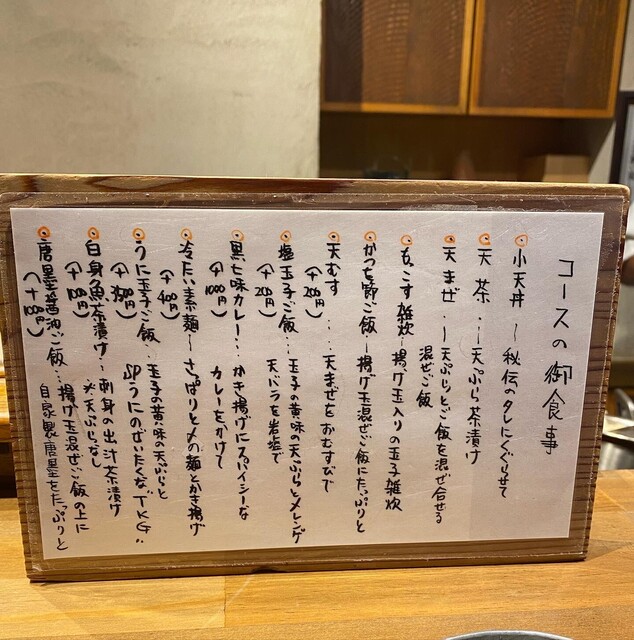 コースの御食事
小天丼 〜 秘伝のタレにくぐらせて
天茶 … 天ぷら茶漬け
天まぜ … 天ぷらとご飯を混ぜ合せる
混ぜご飯
もこす雑炊 … 揚げ玉入りの玉子雑炊
かつを節ご飯 … 揚げ玉混ぜご飯にたっぷりと
天むす … 天まぜをおむすびで
(+200円)
塩玉子ご飯 … 玉子の黄味の天ぷらとメレンゲ
(+200円) 天バラを岩塩で
黒七味カレー … かき揚げにスパイシーな
(+1000円) カレーをかけて
冷たい素麺 〜 さっぱりと〆の麺とかき揚げ
(+400円)
うに玉子ご飯 … 玉子の黄味の天ぷらと
SPうにのぜいたくな"TKG"
白身魚茶漬け 〜 刺身の出汁茶漬け
(+100円) ※天ぷらなし
唐墨醤油ご飯 … 揚げ玉混ぜご飯の上に
自家製唐墨をたっぷりと